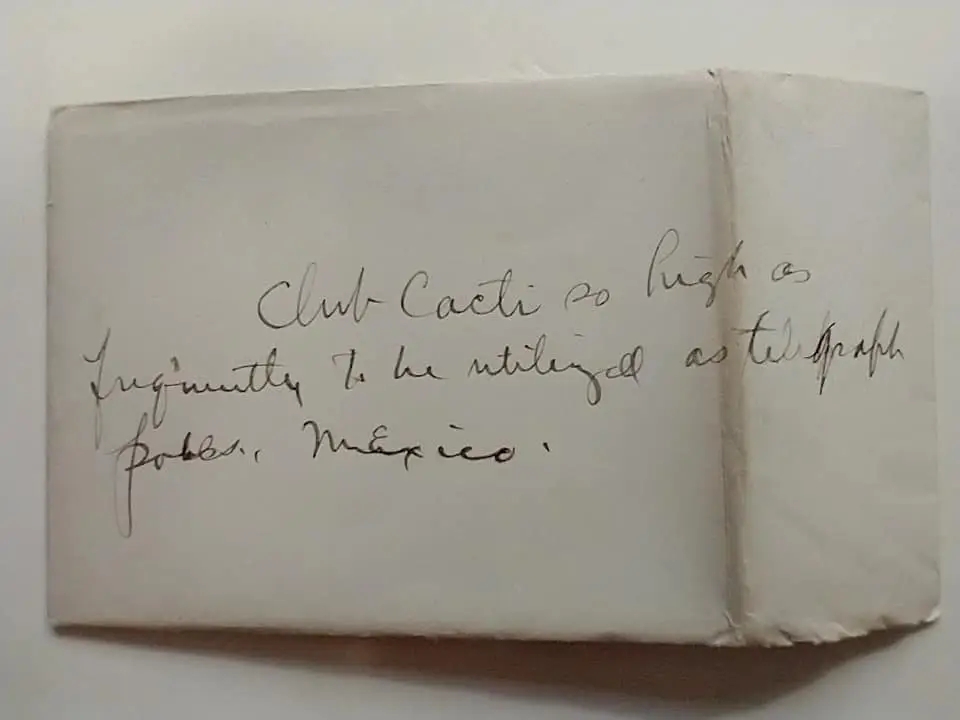 Club Cacti so high as
frequently to be utilized as telegraph
poles., Mexico.